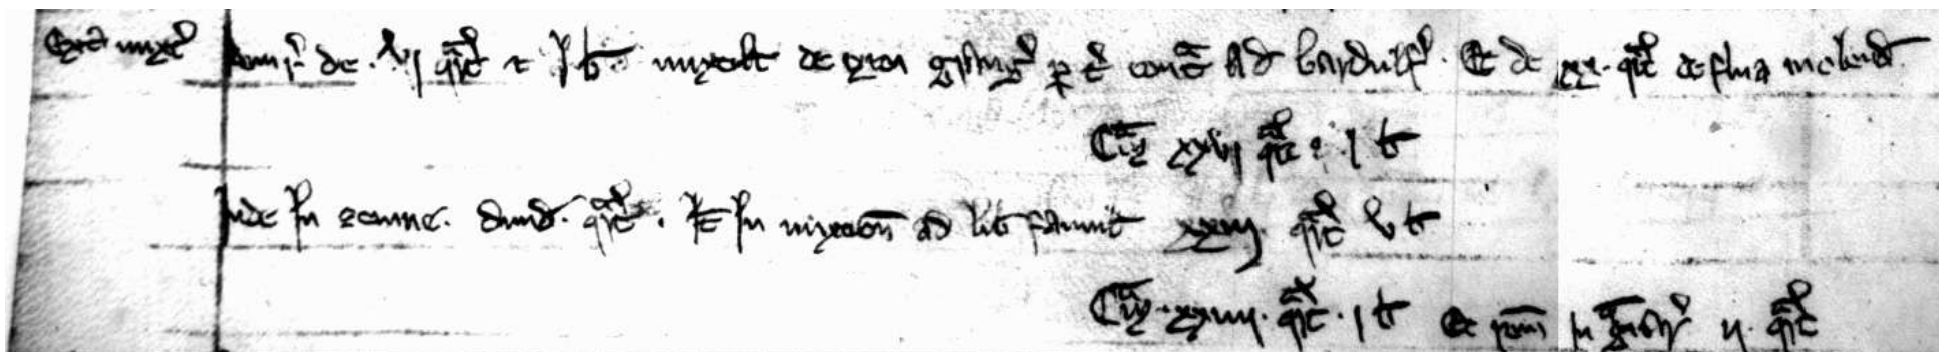 Exit mixt' de . vj qrt' t j b' mixtil' de exit' grang' p t' cont' ad Bardulf'. Et de xx . qrt' de firma molend'
Sm̄ xxvj qrt' t j b'
Inde in semine . dimid' . qrt' . It' in mixtion' ad lib famul' xxiij . qrt' v b'
Sm̄ . xxiiij . qrt' . j b' Et rem' in Granar' ij . qrt'